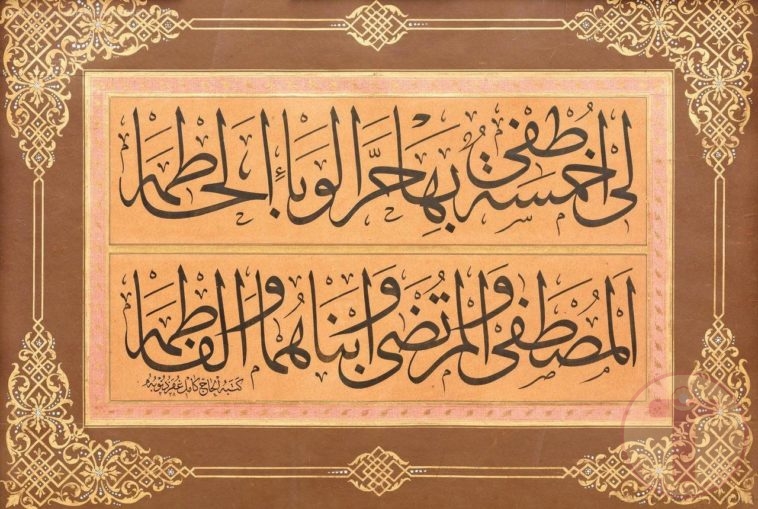 لى خمسة أطفي بها حر الوباء الحاطمه
المصطفى والمرتضى وابناهما والفاطمه
كتبه الحاج كامل غفر ذنوبه